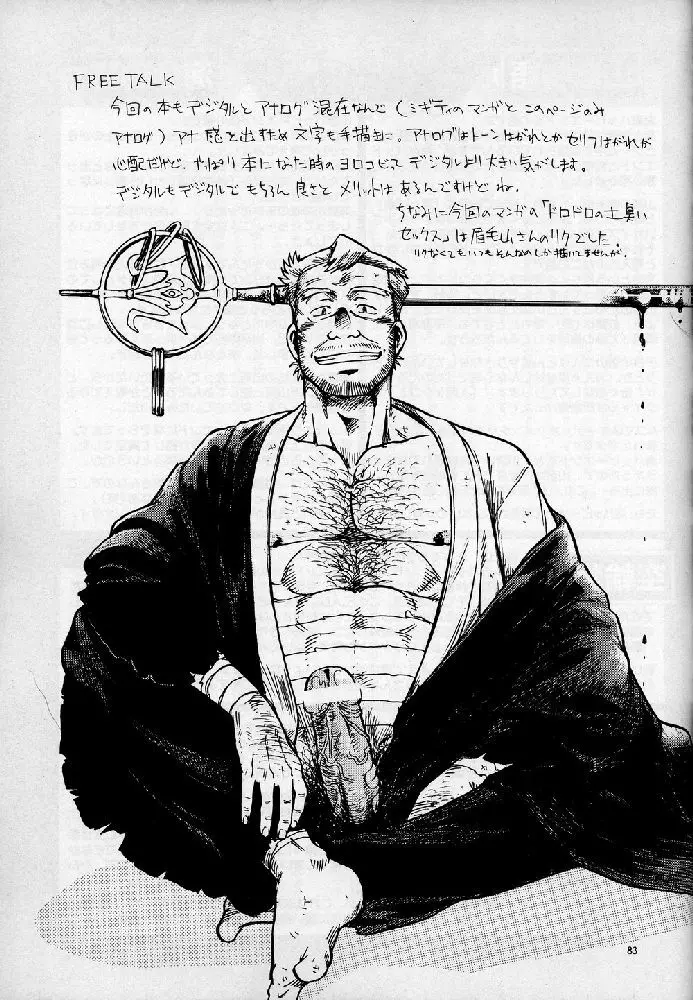 FREE TALK
今回の本もデジタルとアナログ混在なんで(ミギティのマンガと このページのみ
アナログ)アナ感を出すため文字も手描きに。アナログはトーンはがれとかセリフはがれが
心配だけど、やっぱり本になった時のヨロコビってデジタルより大きい気がします。
デジタルもデジタルでもちろん良さとメリットはあるんですけどね。
ちなみに今回のマンガの「ドロドロの土臭い
セックス」は眉毛山さんのリクでした。
リクなくてもいつもそんなのしか描いてませんが。
83